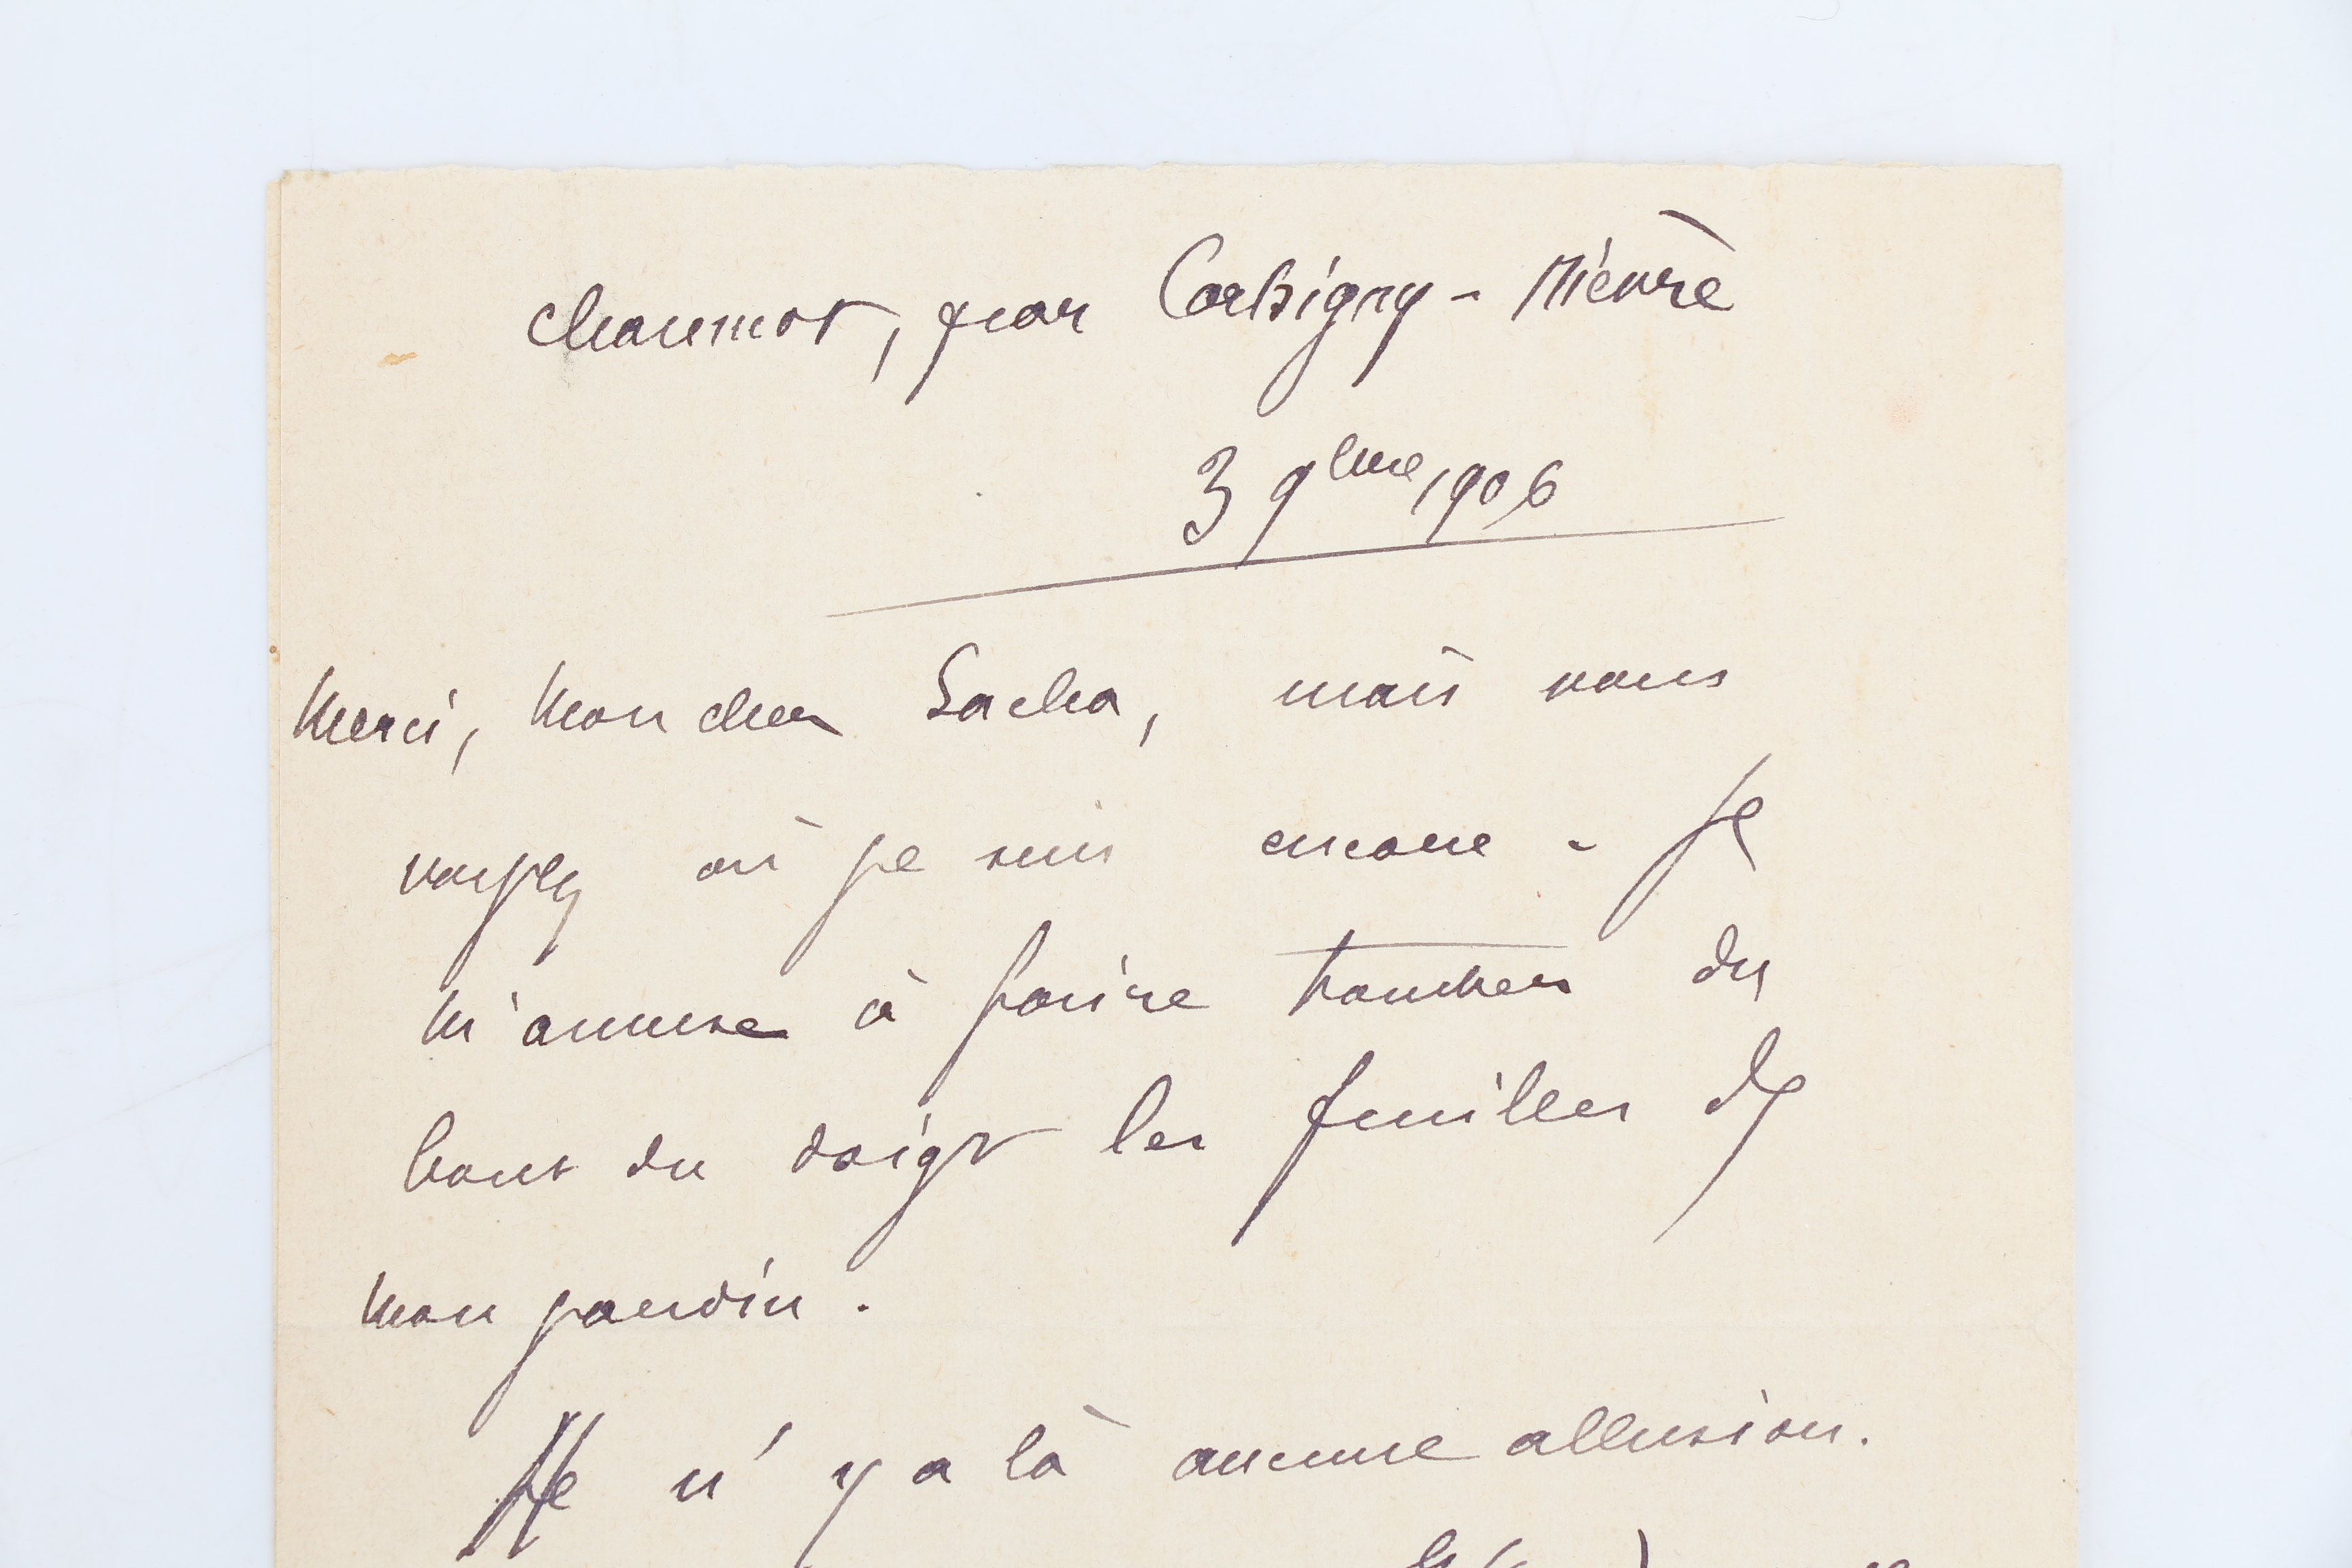 Chaumot, par Corbigny - Nièvre
3 9bre 1906
Merci, Mon cher Sacha, mais vous
voyez où je suis encore - Je
m'amuse à faire tomber du
bout du doigt les feuilles de
mon jardin.
n'y a là aucune allusion.